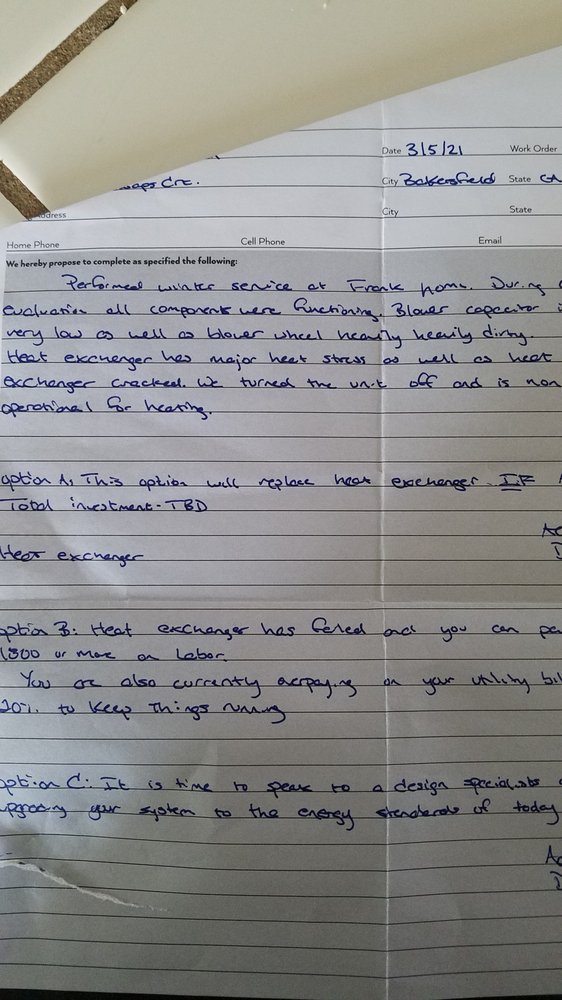 Date 3/5/21 Work Order
Crc. City Bakersfield State CA
Address City State
Home Phone Cell Phone Email
We hereby propose to complete as specified the following:
Performed winter service at Frank home. During
evaluation all components were functioning. Blower capacitor i
very low as well as blower wheel heavily heavily dirty.
Heat exchanger has major heat stress as well as heat
exchanger cracked. We turned the unit off and is non
operational for heating.
option A, This option will replace heat exchanger. IF
Total investment - TBD
Ac
Heat exchanger
option B: Heat exchanger has feiled and you can pa
1,500 or more on Labor.
You are also currently overpaying on your utility bil
20% to keep things running
option C: It is time to speak to a design specialists
upgrading your system to the energy standards of today
Ac